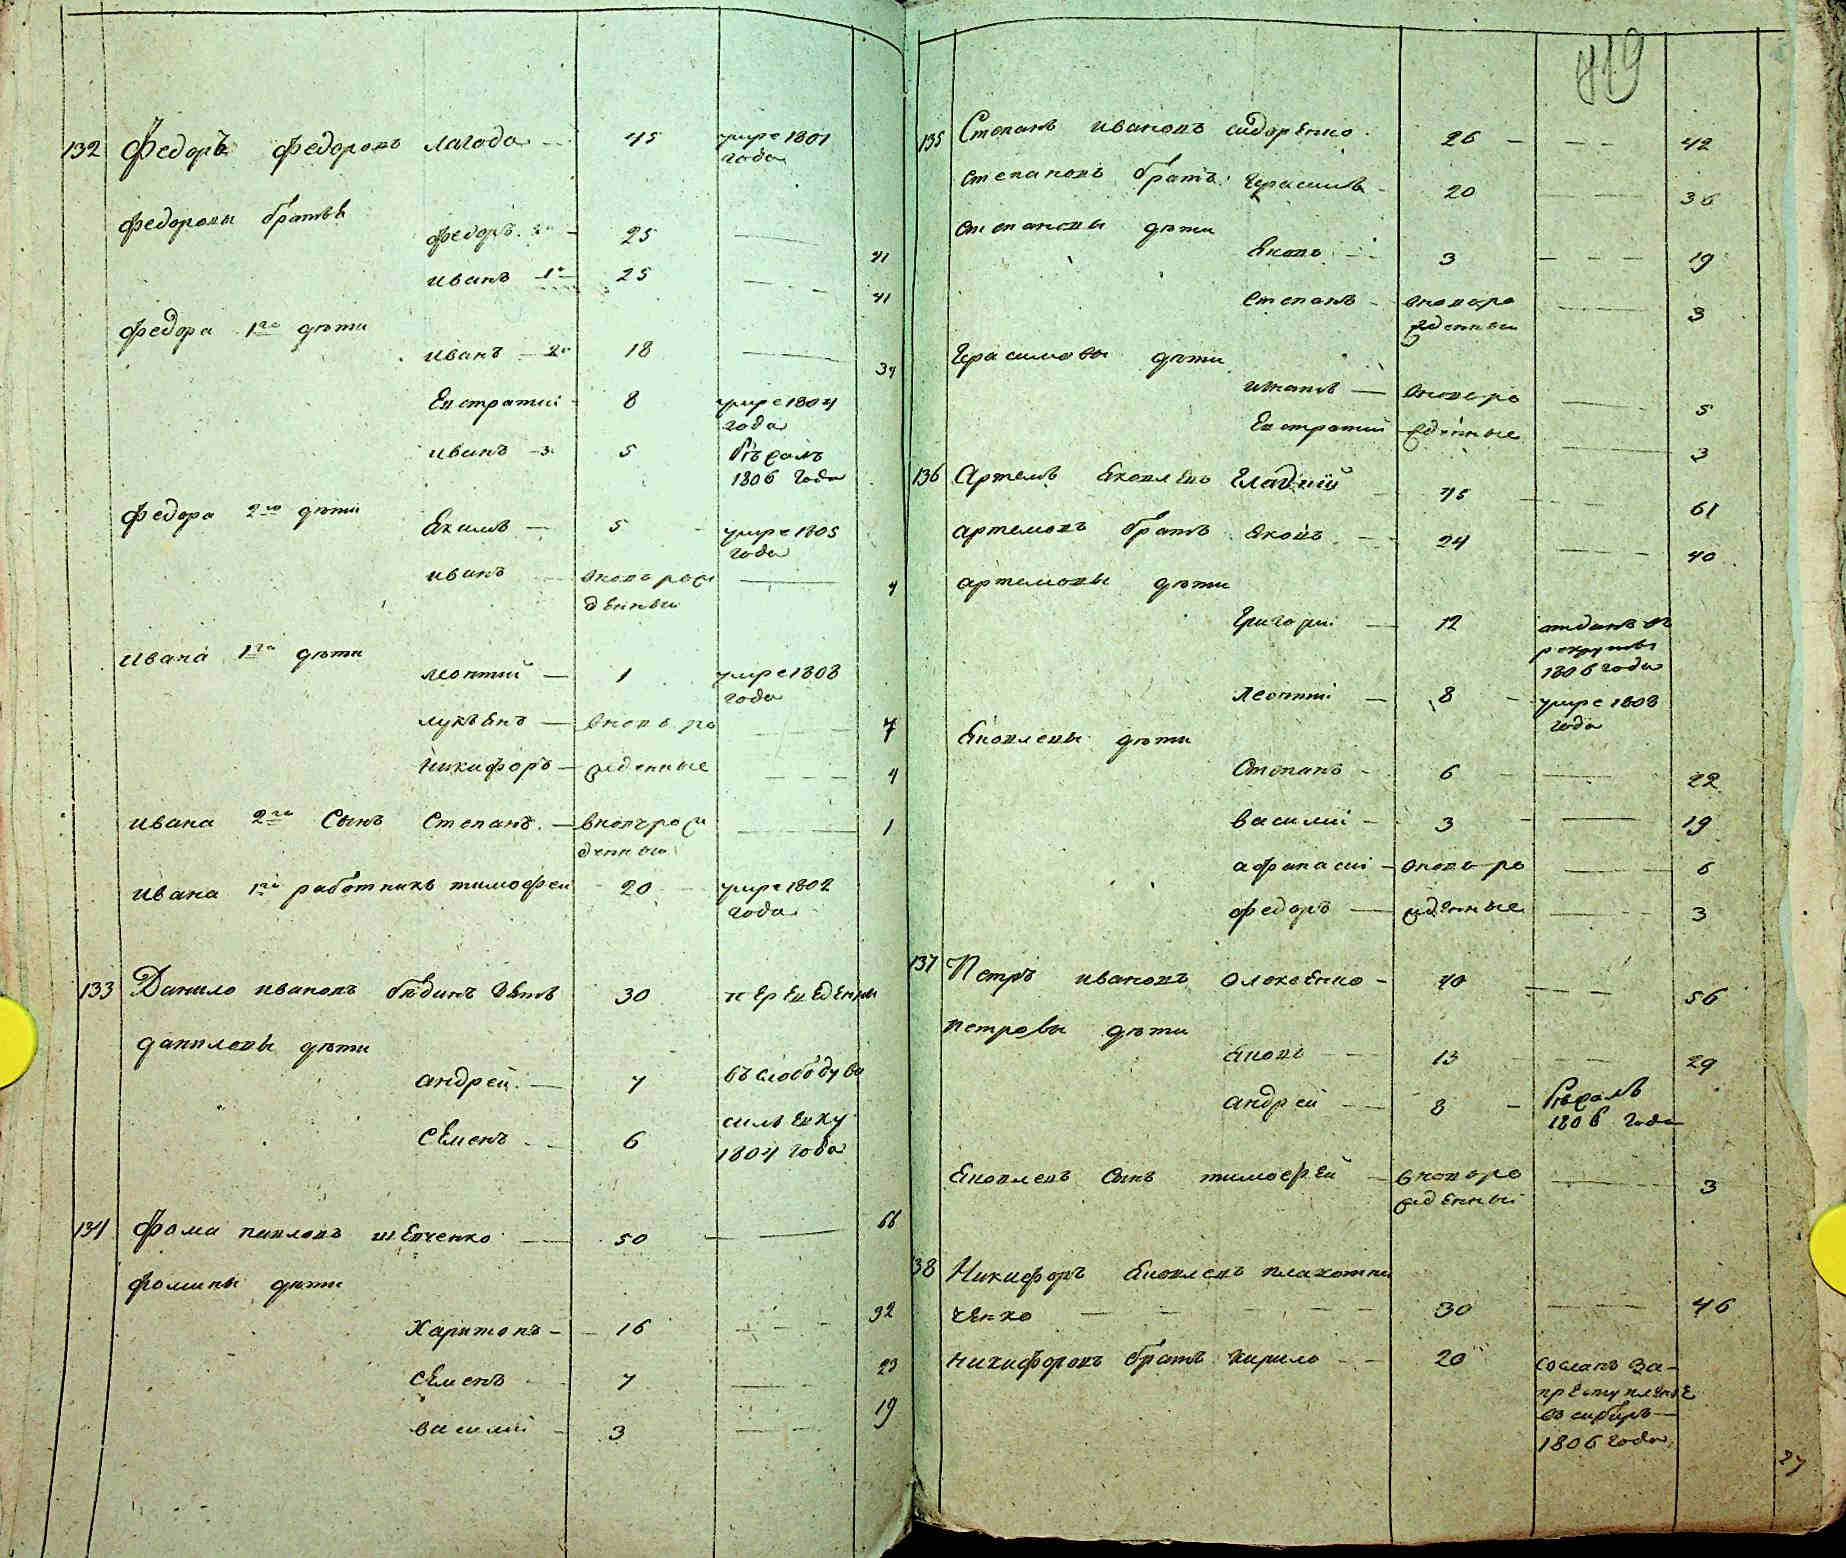 132 Федоръ Федоровъ Лагода 45 умре 1801
года
Федоровы братья
Федоръ 2й 25 41
Иванъ 1й 25 41
Федора 1го дѣти
Иванъ 2й 18 34
Евстратий 8 умре 1804
года
Иванъ 3 5 бѣжалъ
1806 года
Федора 2го дѣти
Екимъ 5 умре 1805
года
Иванъ вновь рож 4
денный
Ивана 1го дѣти
Леонтий 1 умре 1803
года
Лукьянъ вновь ро 7
Никифоръ жденные 4
Ивана 2го сынъ Степанъ вновь рож 1
денный
Ивана 1го работникъ Тимофей 20 умре 1802
года
133 Данило Ивановъ 30 переведены
Даниловы дѣти
Андрей 7 въ слободу Ва
Семенъ 6 сильевку
1804 года
134 Фома Павловъ Шевченко 50 66
Фомины дѣти
Харитонъ 16 32
Семенъ 7 23
Василий 3 19
419
135 Степанъ Ивановъ Сидоренко 26 42
Степановъ братъ Герасимъ 20 36
Степановы дѣти
Яковъ 3 19
Степанъ вновь ро 3
жденный
Герасимовы дѣти
Игнатъ вновь ро 5
Евстратий жденные 3
136 Артемъ Яковлевъ Гладкий 45 61
Артемовъ братъ Яковъ 24 40
Артемовы дѣти
Григорий 12 отданъ въ
рекруты
1806 года
Леонтий 8 умре 1808
года
Яковлевы дѣти
Степанъ 6 22
Василий 3 19
Афанасий вновь ро 6
Федоръ жденные 3
137 Петръ Ивановъ 40 56
Петровы дѣти
Яковъ 13 29
Андрей 8 бѣжалъ
1806 года
Яковлевъ сынъ Тимофей вновь ро 3
жденный
138 Никифоръ Яковлевъ Плахотни
ченко 30 46
Никифоровъ братъ Кирило 20 сосланъ за
преступление
въ сибирь
1806 года
27